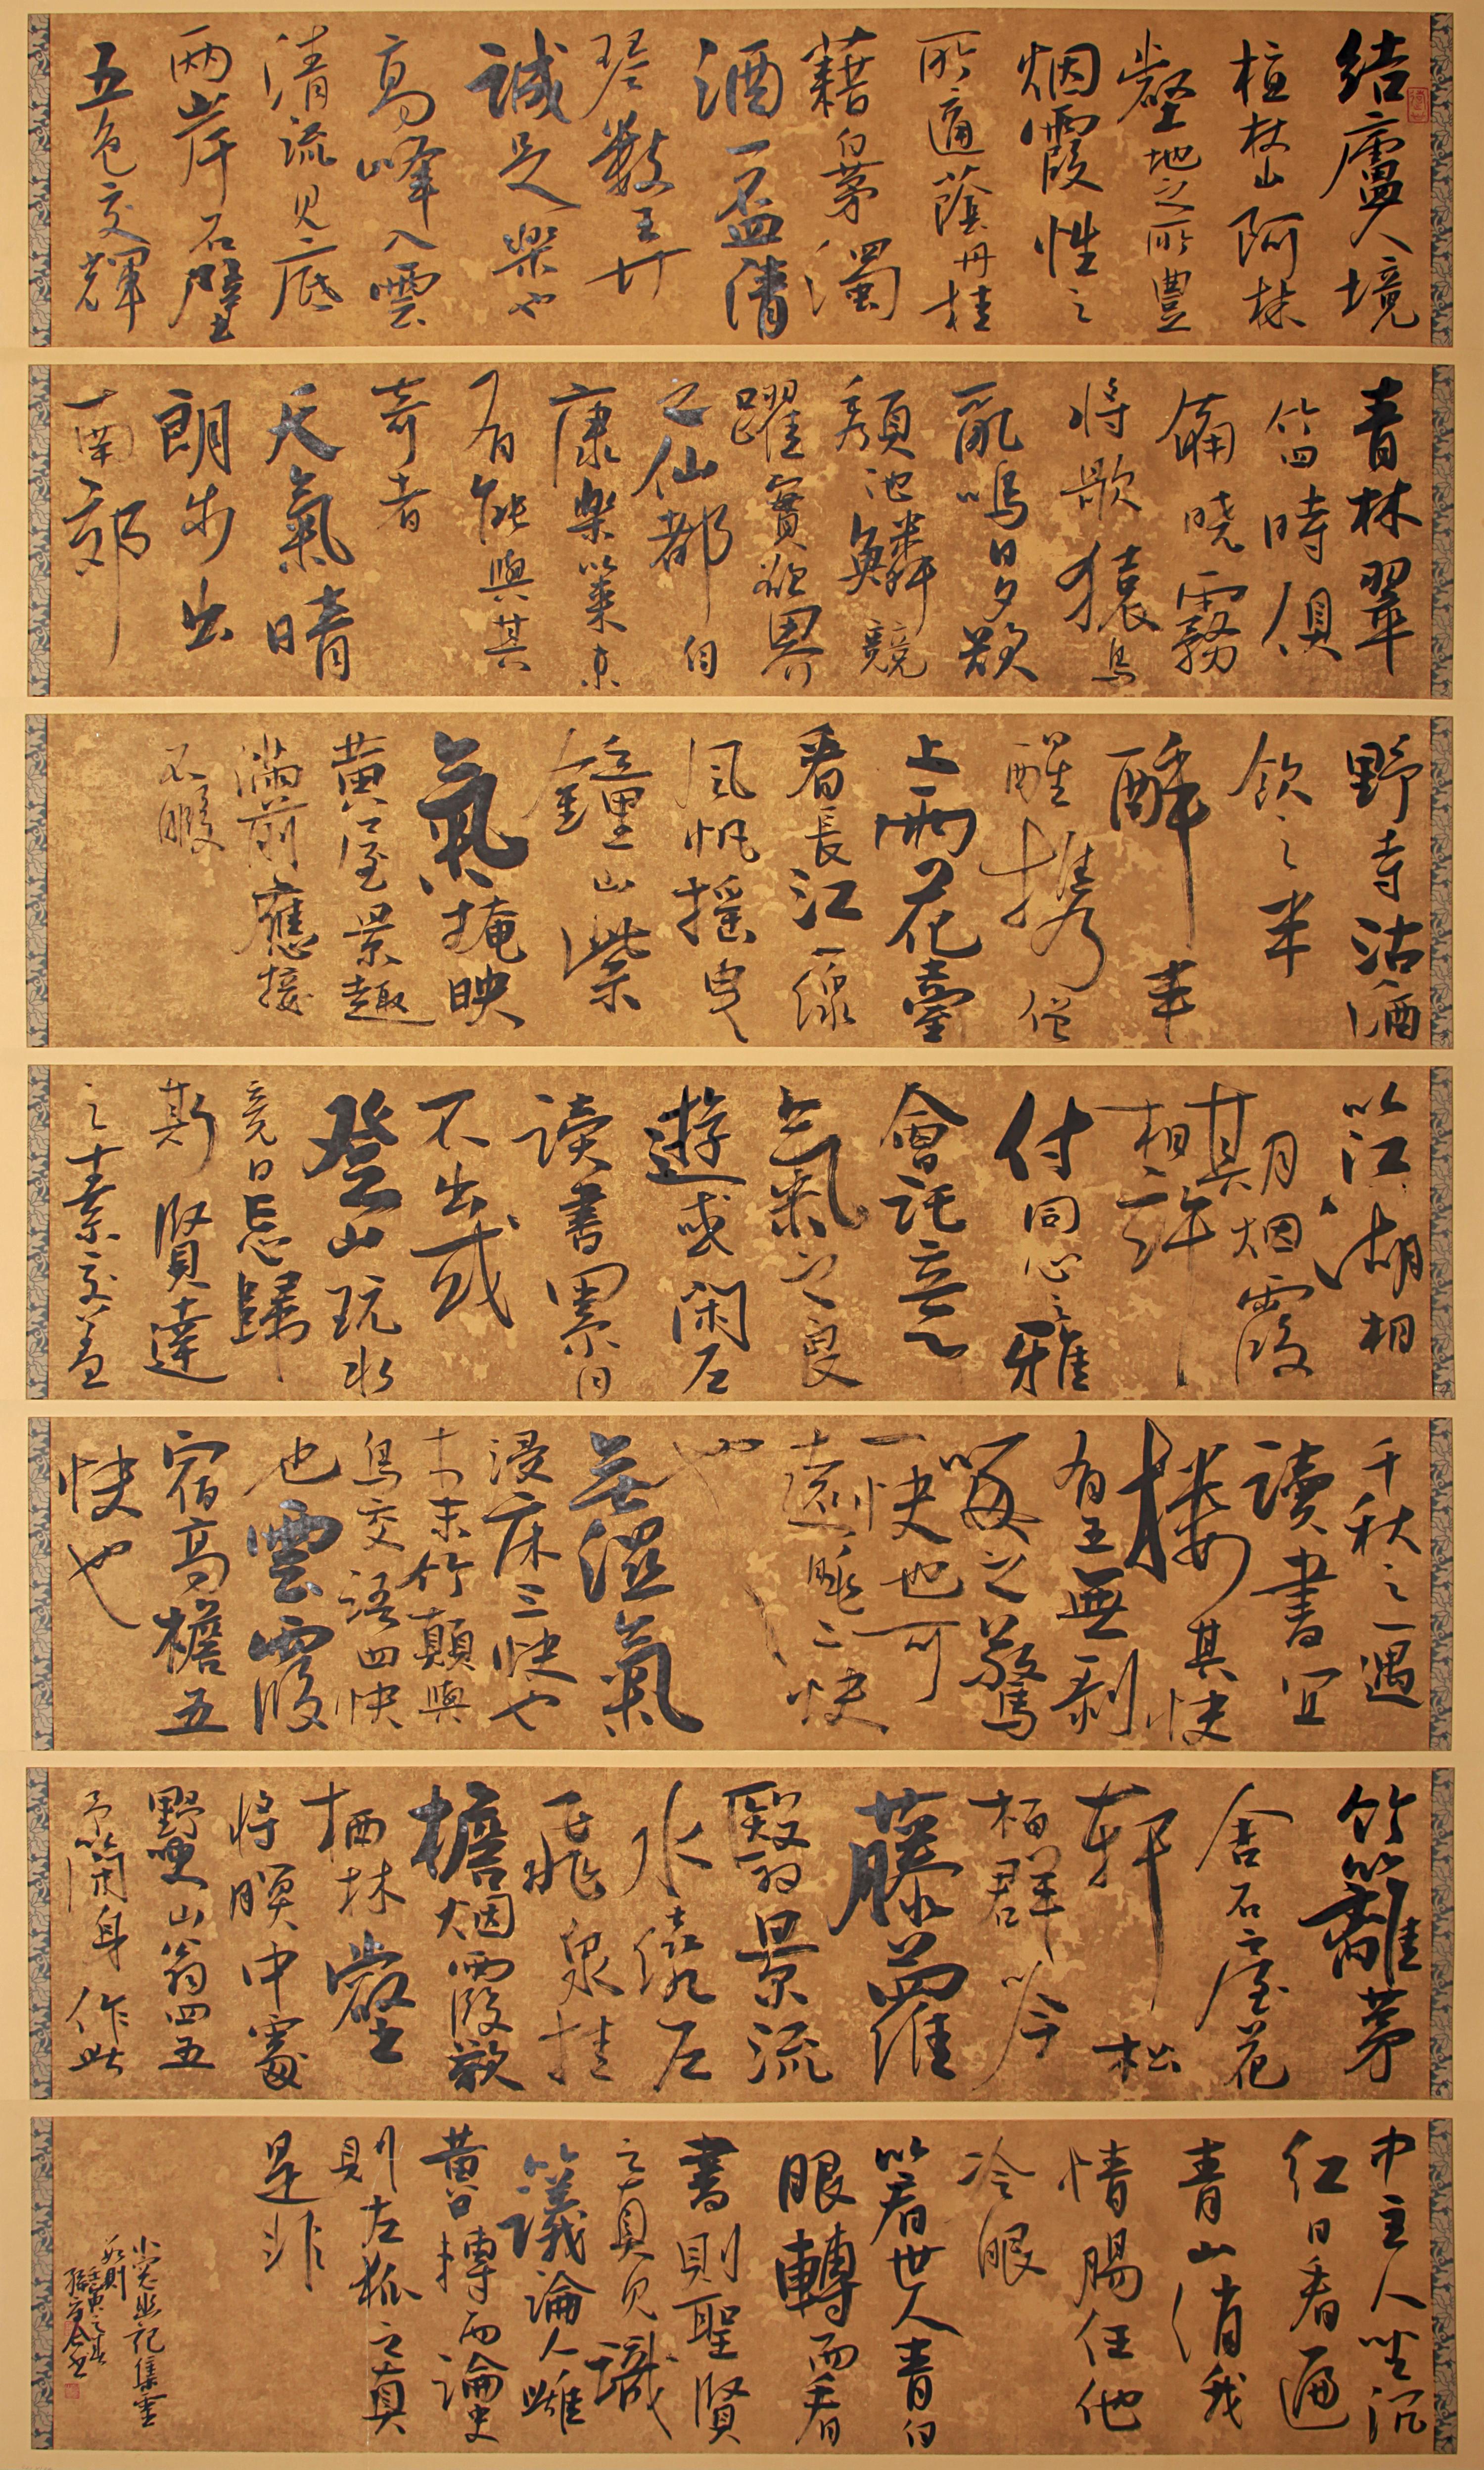 結廬人境
植杖山阿林
壑地之所豐
烟霞性之
所適蔭丹桂
藉白茅濁
酒一盃清
琴數
誠足樂也
高峰入雲
清流見底
兩岸石壁
五色交輝
青林翠
竹四時俱
備曉霧
將歇猿鳥
亂鳴日夕欲
頹池鱗競
躍實欲界
之仙都自
康樂以來未
有能與其
奇者
天氣晴
朗步出
南郊
野寺沽酒
飲之半
醉半
醒攜僧
上雨花臺
看長江一線
風帆搖曳
鐘山紫
氣掩映
黃屋景趣
滿前應接
不暇
以江湖相
期烟霞
相許
付同心之雅
會託意
氣之良
遊或閑居
讀書累日
不出或
登山玩水
竟日忘歸
斯賢達
之素交蓋
千秋之一遇
讀書宜
樓其快
有五無剝
啄之驚
一快也可
遠眺二快
也
無濕氣
浸床三快也
木末竹顛與
鳥交語四快
也雲霞
宿高檐五
快也
竹籬茅
舍石屋花
軒松
柏群吟
藤蘿
翳景流
水繞戶
飛泉挂
檐烟霞欲
栖林壑
將暝中處
野叟山翁四五
予以閒身作此
中主人坐沉
紅日看遍
青山消我
情腸任他
冷眼
以看世人青白
眼轉而看
書則聖賢
之真見識
以議論人雌
黃口轉而論史
則左狐之真
是非
小窗幽記集靈